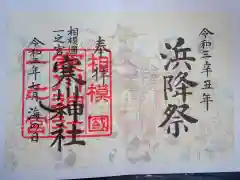 令和三辛丑年
浜降祭
奉拝
相模國
一之宮
寒川神社
相模國
令和三年七月海の日